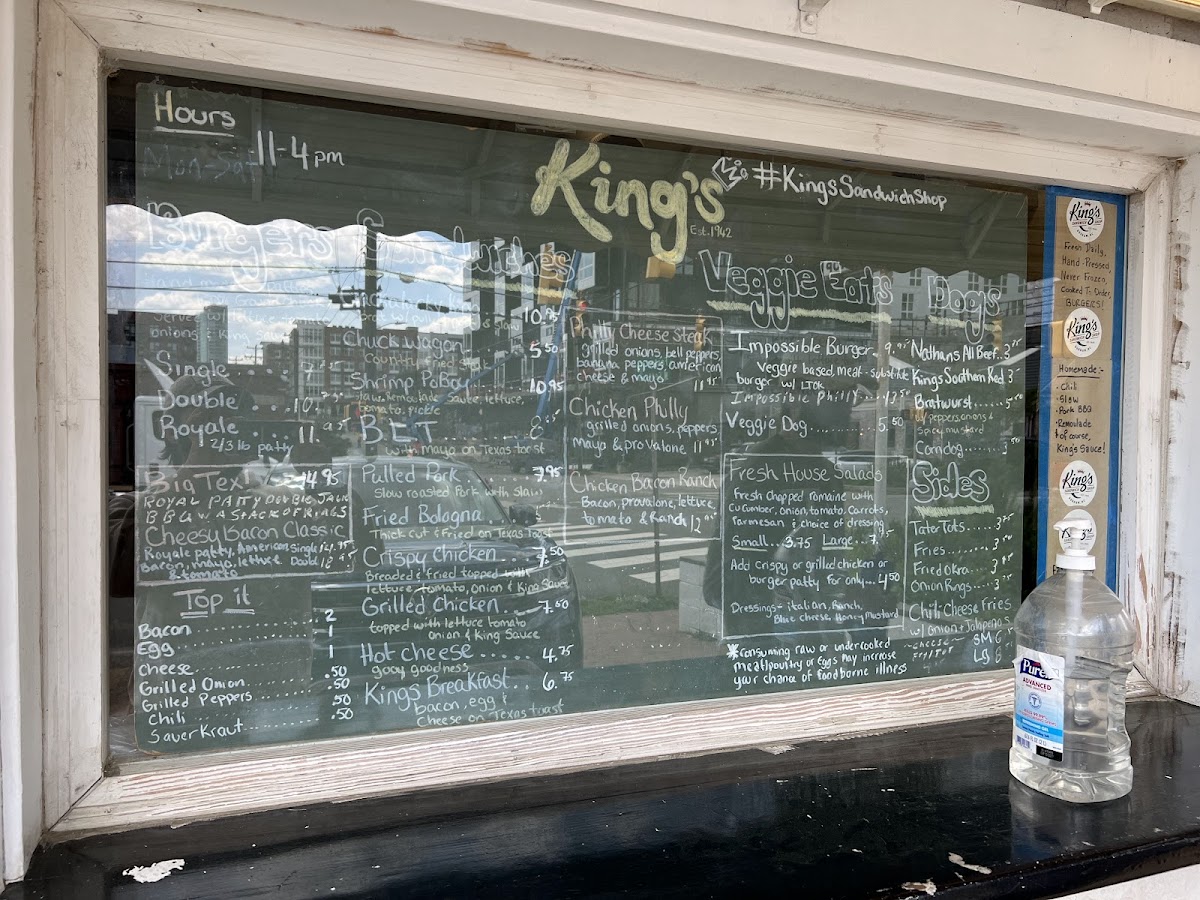 Hours
Mon-Sat 11-4pm
King's
Est. 1942
#KingsSandwichShop
Burgers
onions
Single
Double
Royale
2/3 lb patty
Big Tex 14.95
ROYAL PATTY DOUBLE JACK
BBQ W A STACK OF RINGS
Cheesy Bacon Classic
Royale patty, American
Bacon, mayo, lettuce
& tomato
Top it
Bacon
Egg
cheese
Grilled Onion
Grilled Peppers
Chili
Sauer Kraut
2
1
1
.50
.50
.50
Sandwiches
10.95
Chuckwagon
5.50
Shrimp PoBoy 10.95
slaw, Remoulade sauce, lettuce,
tomato, pickle
BLT
with mayo on Texas toast
Pulled Pork 7.95
Slow roasted Pork with slaw
Fried Bologna
Thick cut & fried on Texas Toast
Crispy Chicken 7.50
Breaded & fried topped with
lettuce, tomato, onion & King Sauce
Grilled Chicken... 7.50
topped with lettuce tomato
onion & King Sauce
Hot cheese..... 4.75
gooy goodness
Kings Breakfast.. 6.75
Bacon, egg &
Cheese on Texas toast
Philly Cheese Steak
grilled onions, bell peppers,
banana peppers, american
cheese & mayo 11.95
Chicken Philly
grilled onions, peppers
Mayo & provalone 11.95
Chicken Bacon Ranch
Bacon, provalone, lettuce
tomato & Ranch
Veggie Eats
Impossible Burger
Veggie based, meat-substitute
burger w/ LTOK
Impossible Philly
Veggie Dog....... 5.50
Fresh House Salads
Fresh chopped romaine with
Cucumber, onion, tomato, Carrots,
Parmesan & choice of dressing
Small.. 3.75 Large.. 7.95
Add crispy or grilled chicken or
burger patty for only... 4.50
Dressings- italian, Ranch,
Blue cheese, Honey Mustard
*Consuming raw or undercooked
meat/poultry or Eggs may increase
your chance of foodborne illness
Dogs
Nathans All Beef
Kings Southern Red
Bratwurst
w/ peppers, onions &
spicy mustard
Corndog
Sides
Tater Tots
Fries
Fried Okra
Onion Rings
Chili Cheese Fries
w/ onion + Jalapeno's
SM
LG
King's
Fresh Daily,
Hand-Pressed,
Never Frozen,
Cooked To Order,
BURGERS!
King's
Homemade:-
- Chili
- Slaw
- Pork BBQ
- Remoulade
& of course,
King's Sauce!
King's
Purell
ADVANCED